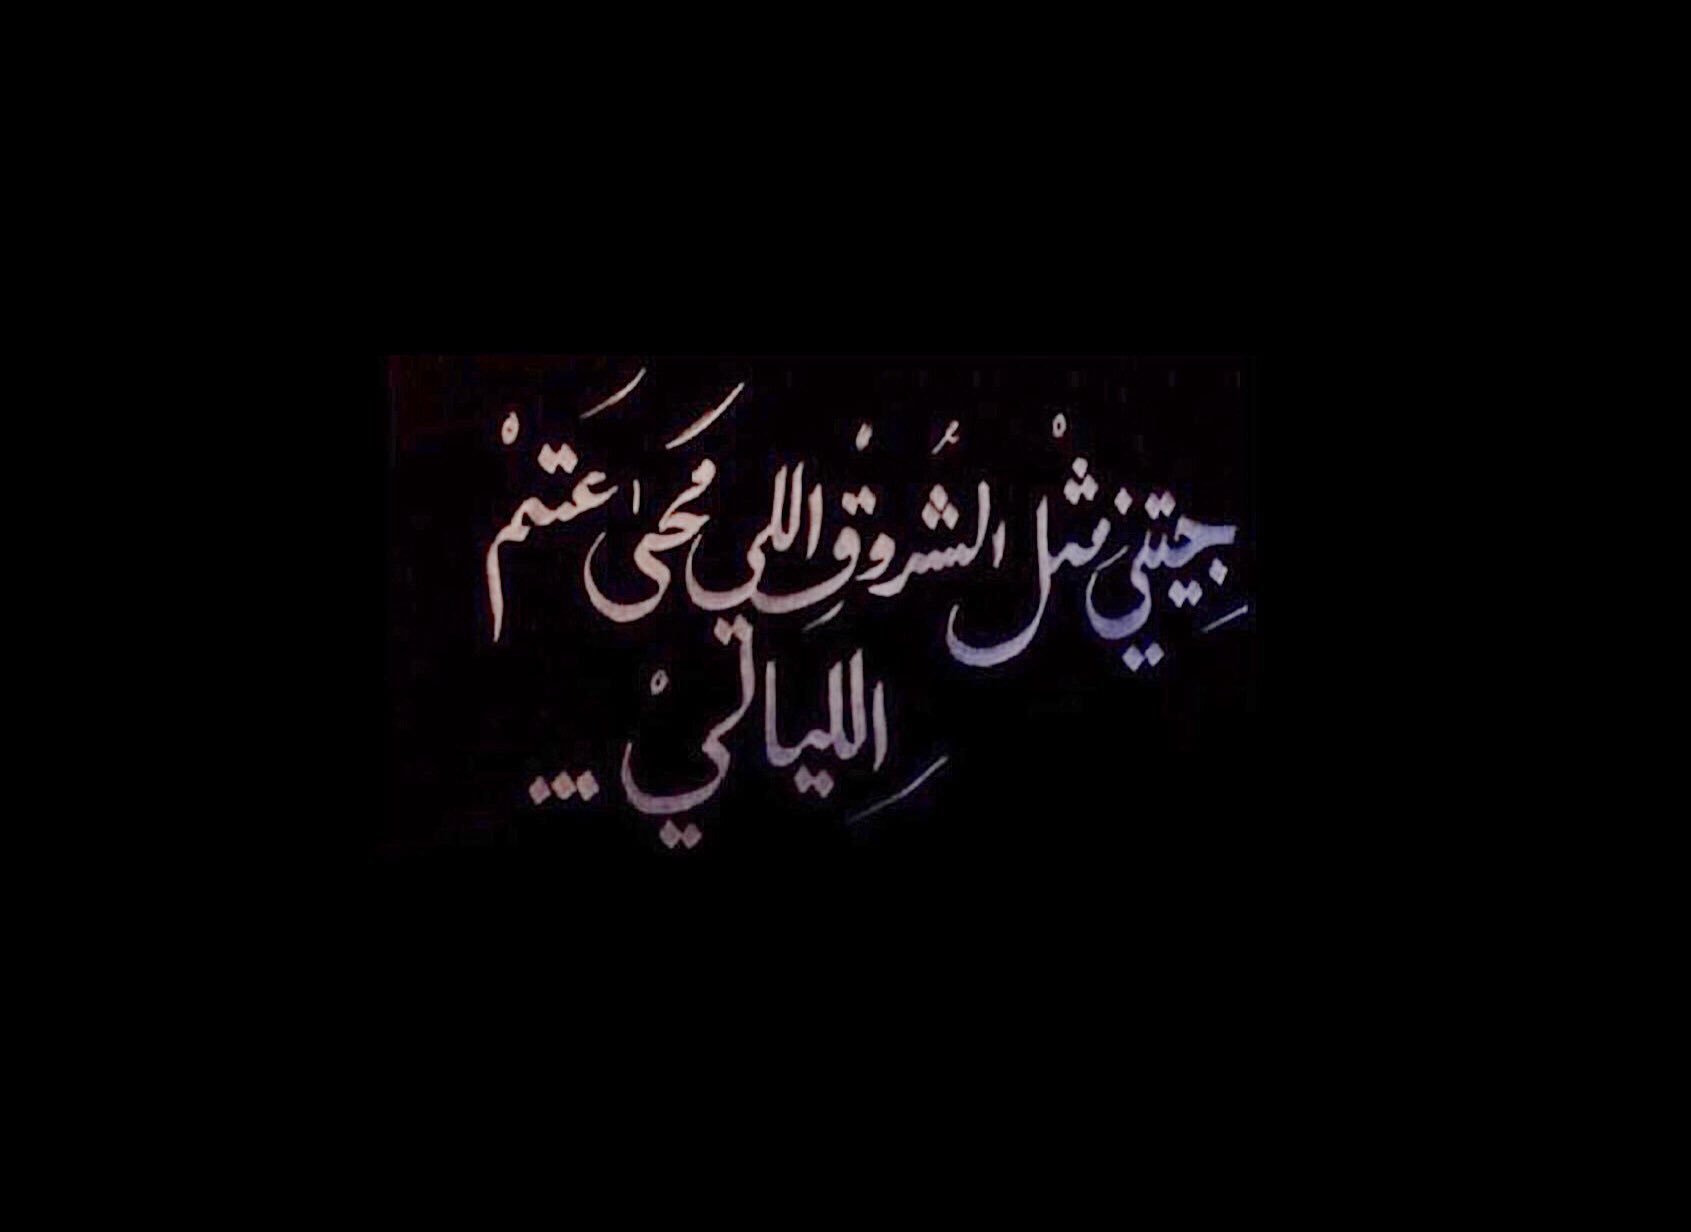 جِيتني مثْل الشُروقْ اللي مَحى اعَتمْ
اللِياليْ...